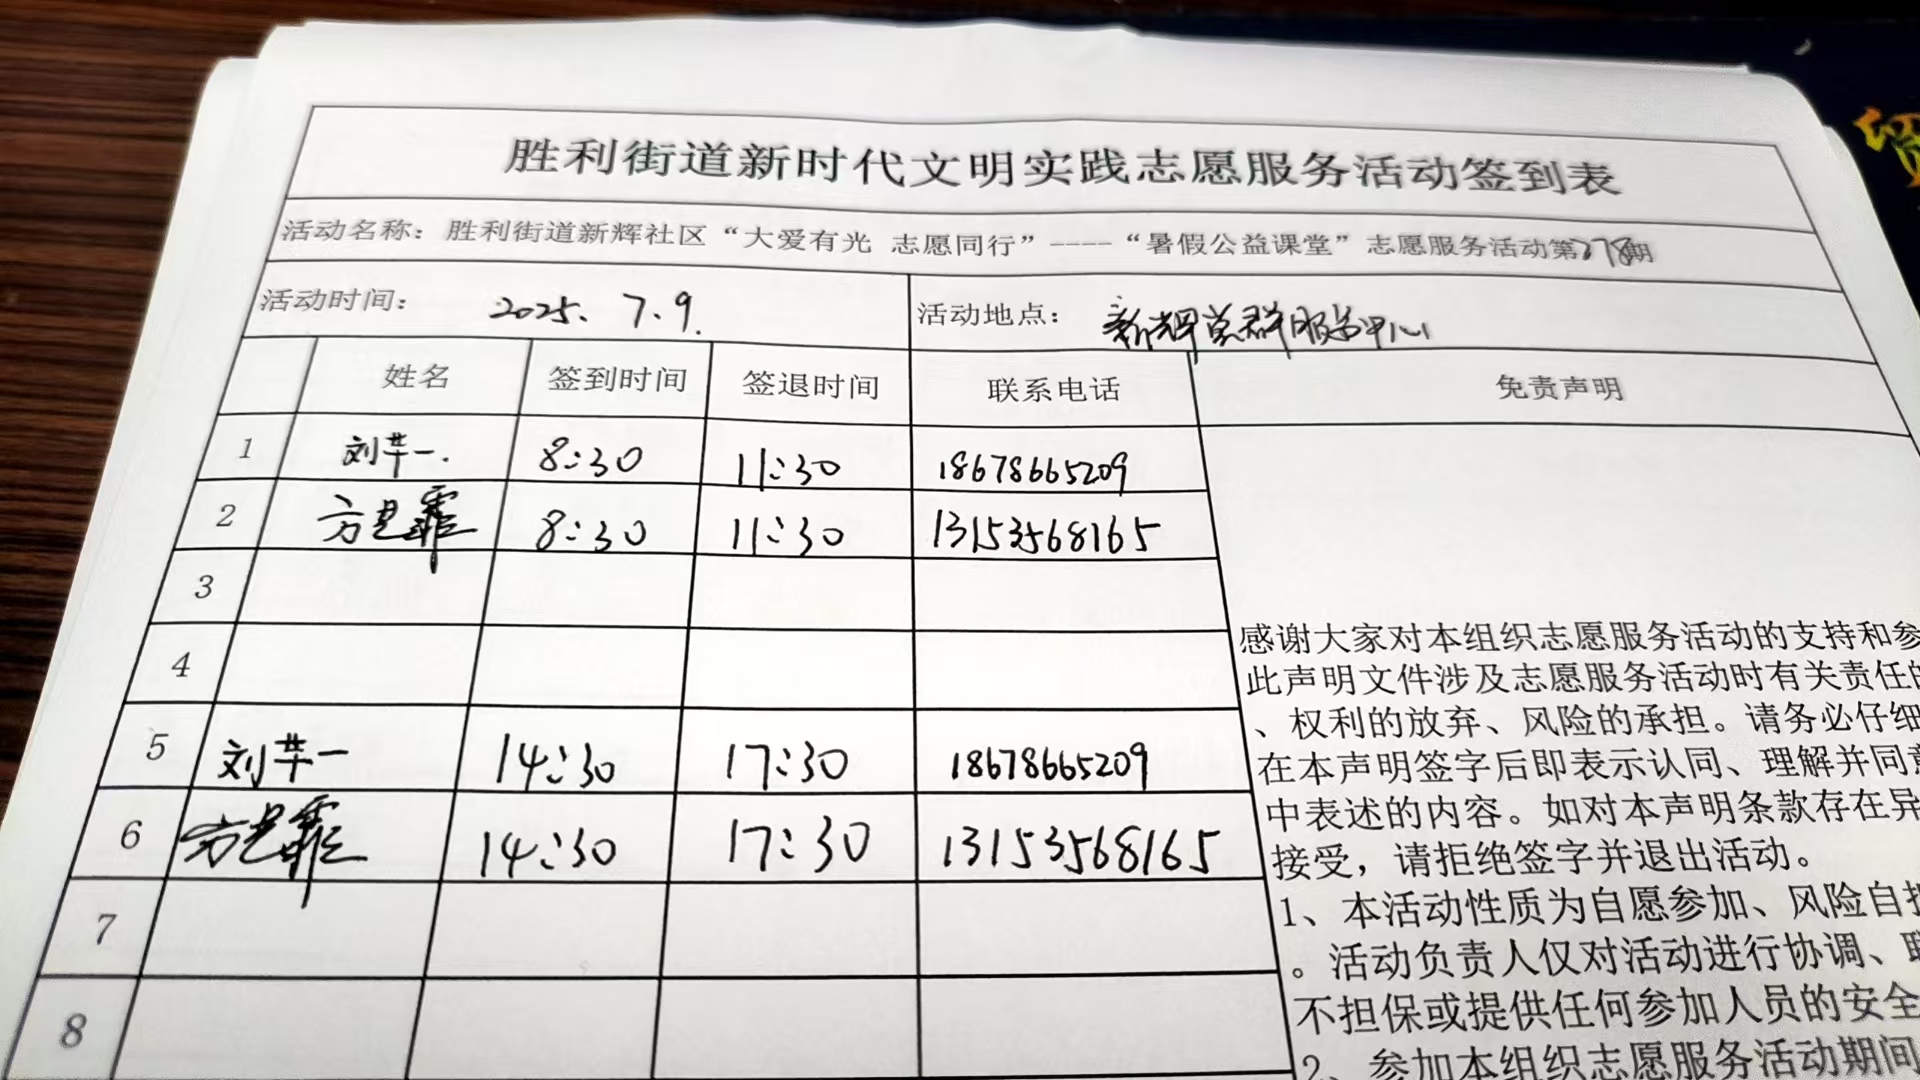 胜利街道新时代文明实践志愿服务活动签到表
活动名称：胜利街道新辉社区“大爱有光 志愿同行”----“暑假公益课堂”志愿服务活动第278期
活动时间： 2025.7.9. 活动地点： 新辉党群服务中心
姓名 签到时间 签退时间 联系电话 免责声明
1 刘芊一. 8:30 11:30 18678665209
2 方 霏 8:30 11:30 13153568165
3
4
5 刘芊一 14:30 17:30 18678665209
6 方 霏 14:30 17:30 13153568165
7
8
感谢大家对本组织志愿服务活动的支持和参
此声明文件涉及志愿服务活动时有关责任的
、权利的放弃、风险的承担。请务必仔细
在本声明签字后即表示认同、理解并同意
中表述的内容。如对本声明条款存在异
接受，请拒绝签字并退出活动。
1、本活动性质为自愿参加、风险自担
。活动负责人仅对活动进行协调、联
不担保或提供任何参加人员的安全
2、参加本组织志愿服务活动期间
贸